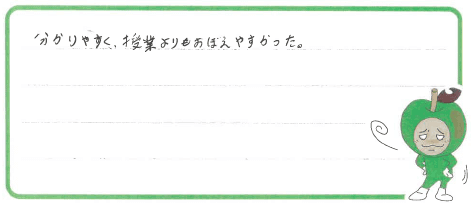 分かりやすく、授業よりもおぼえやすかった。